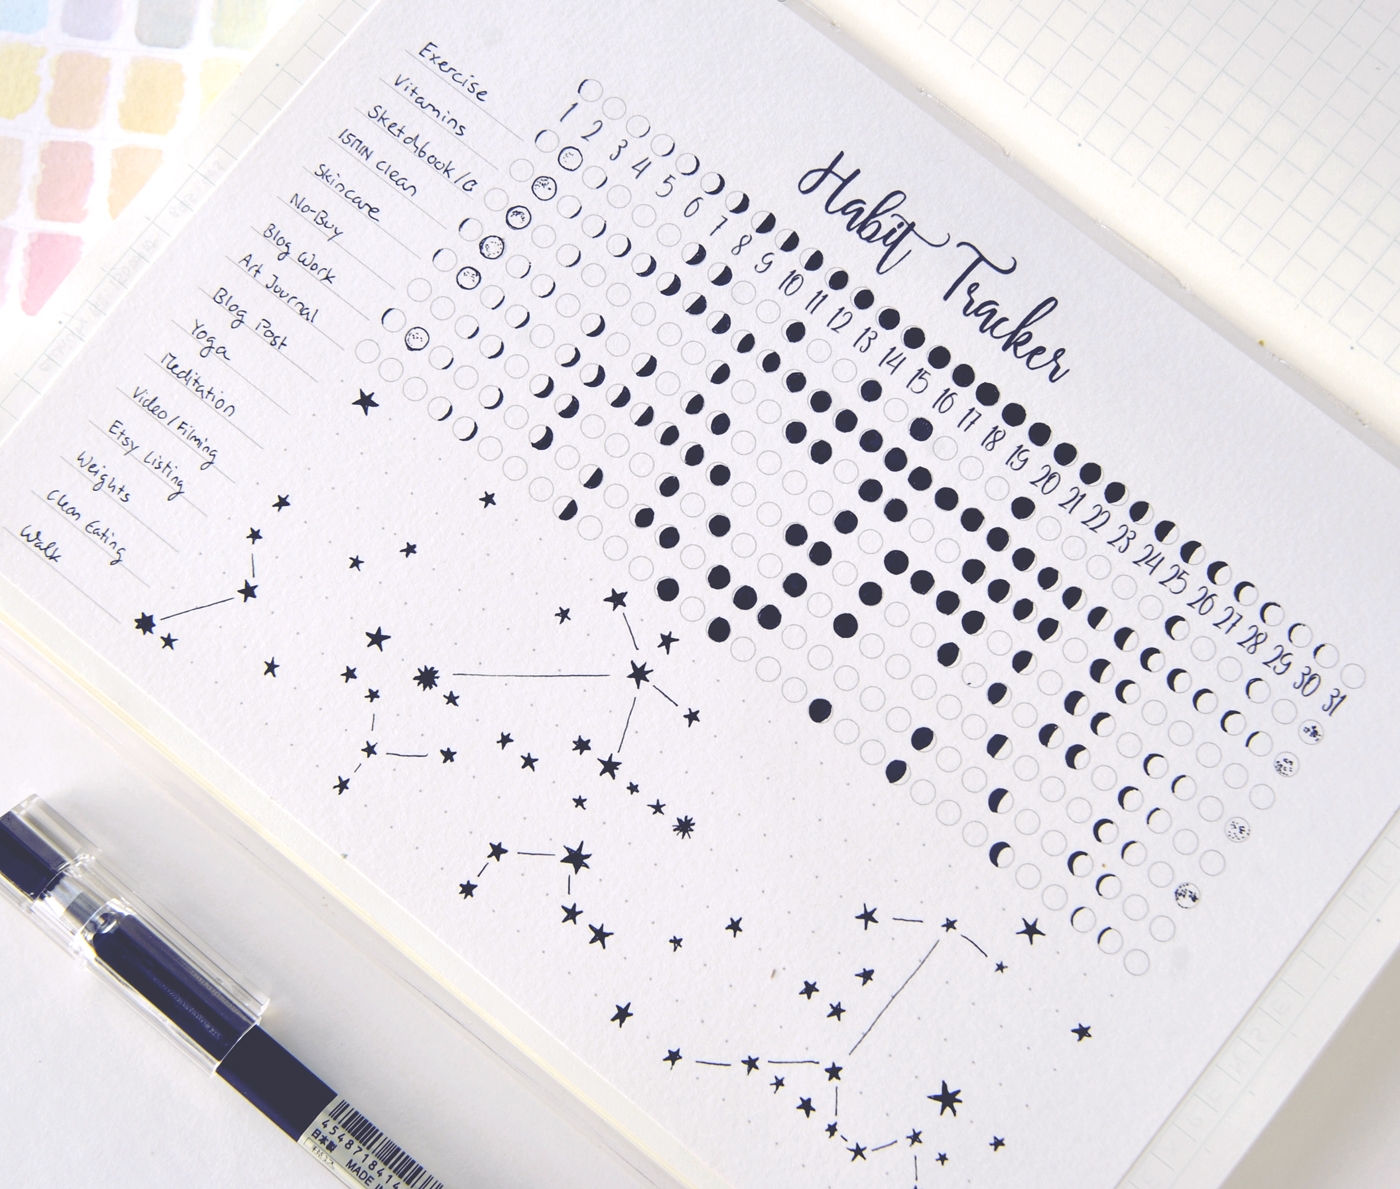 Habit Tracker
1 2 3 4 5 6 7 8 9 10 11 12 13 14 15 16 17 18 19 20 21 22 23 24 25 26 27 28 29 30 31
Exercise
Vitamins
Sketchbook/C
15MIN Clean
Skincare
No-Buy
Blog Work
Art Journal
Blog Post
Yoga
Meditation
Video/Filming
Etsy Listing
Weights
Clean Eating
Walk
4548718414
日本製 MADE IN